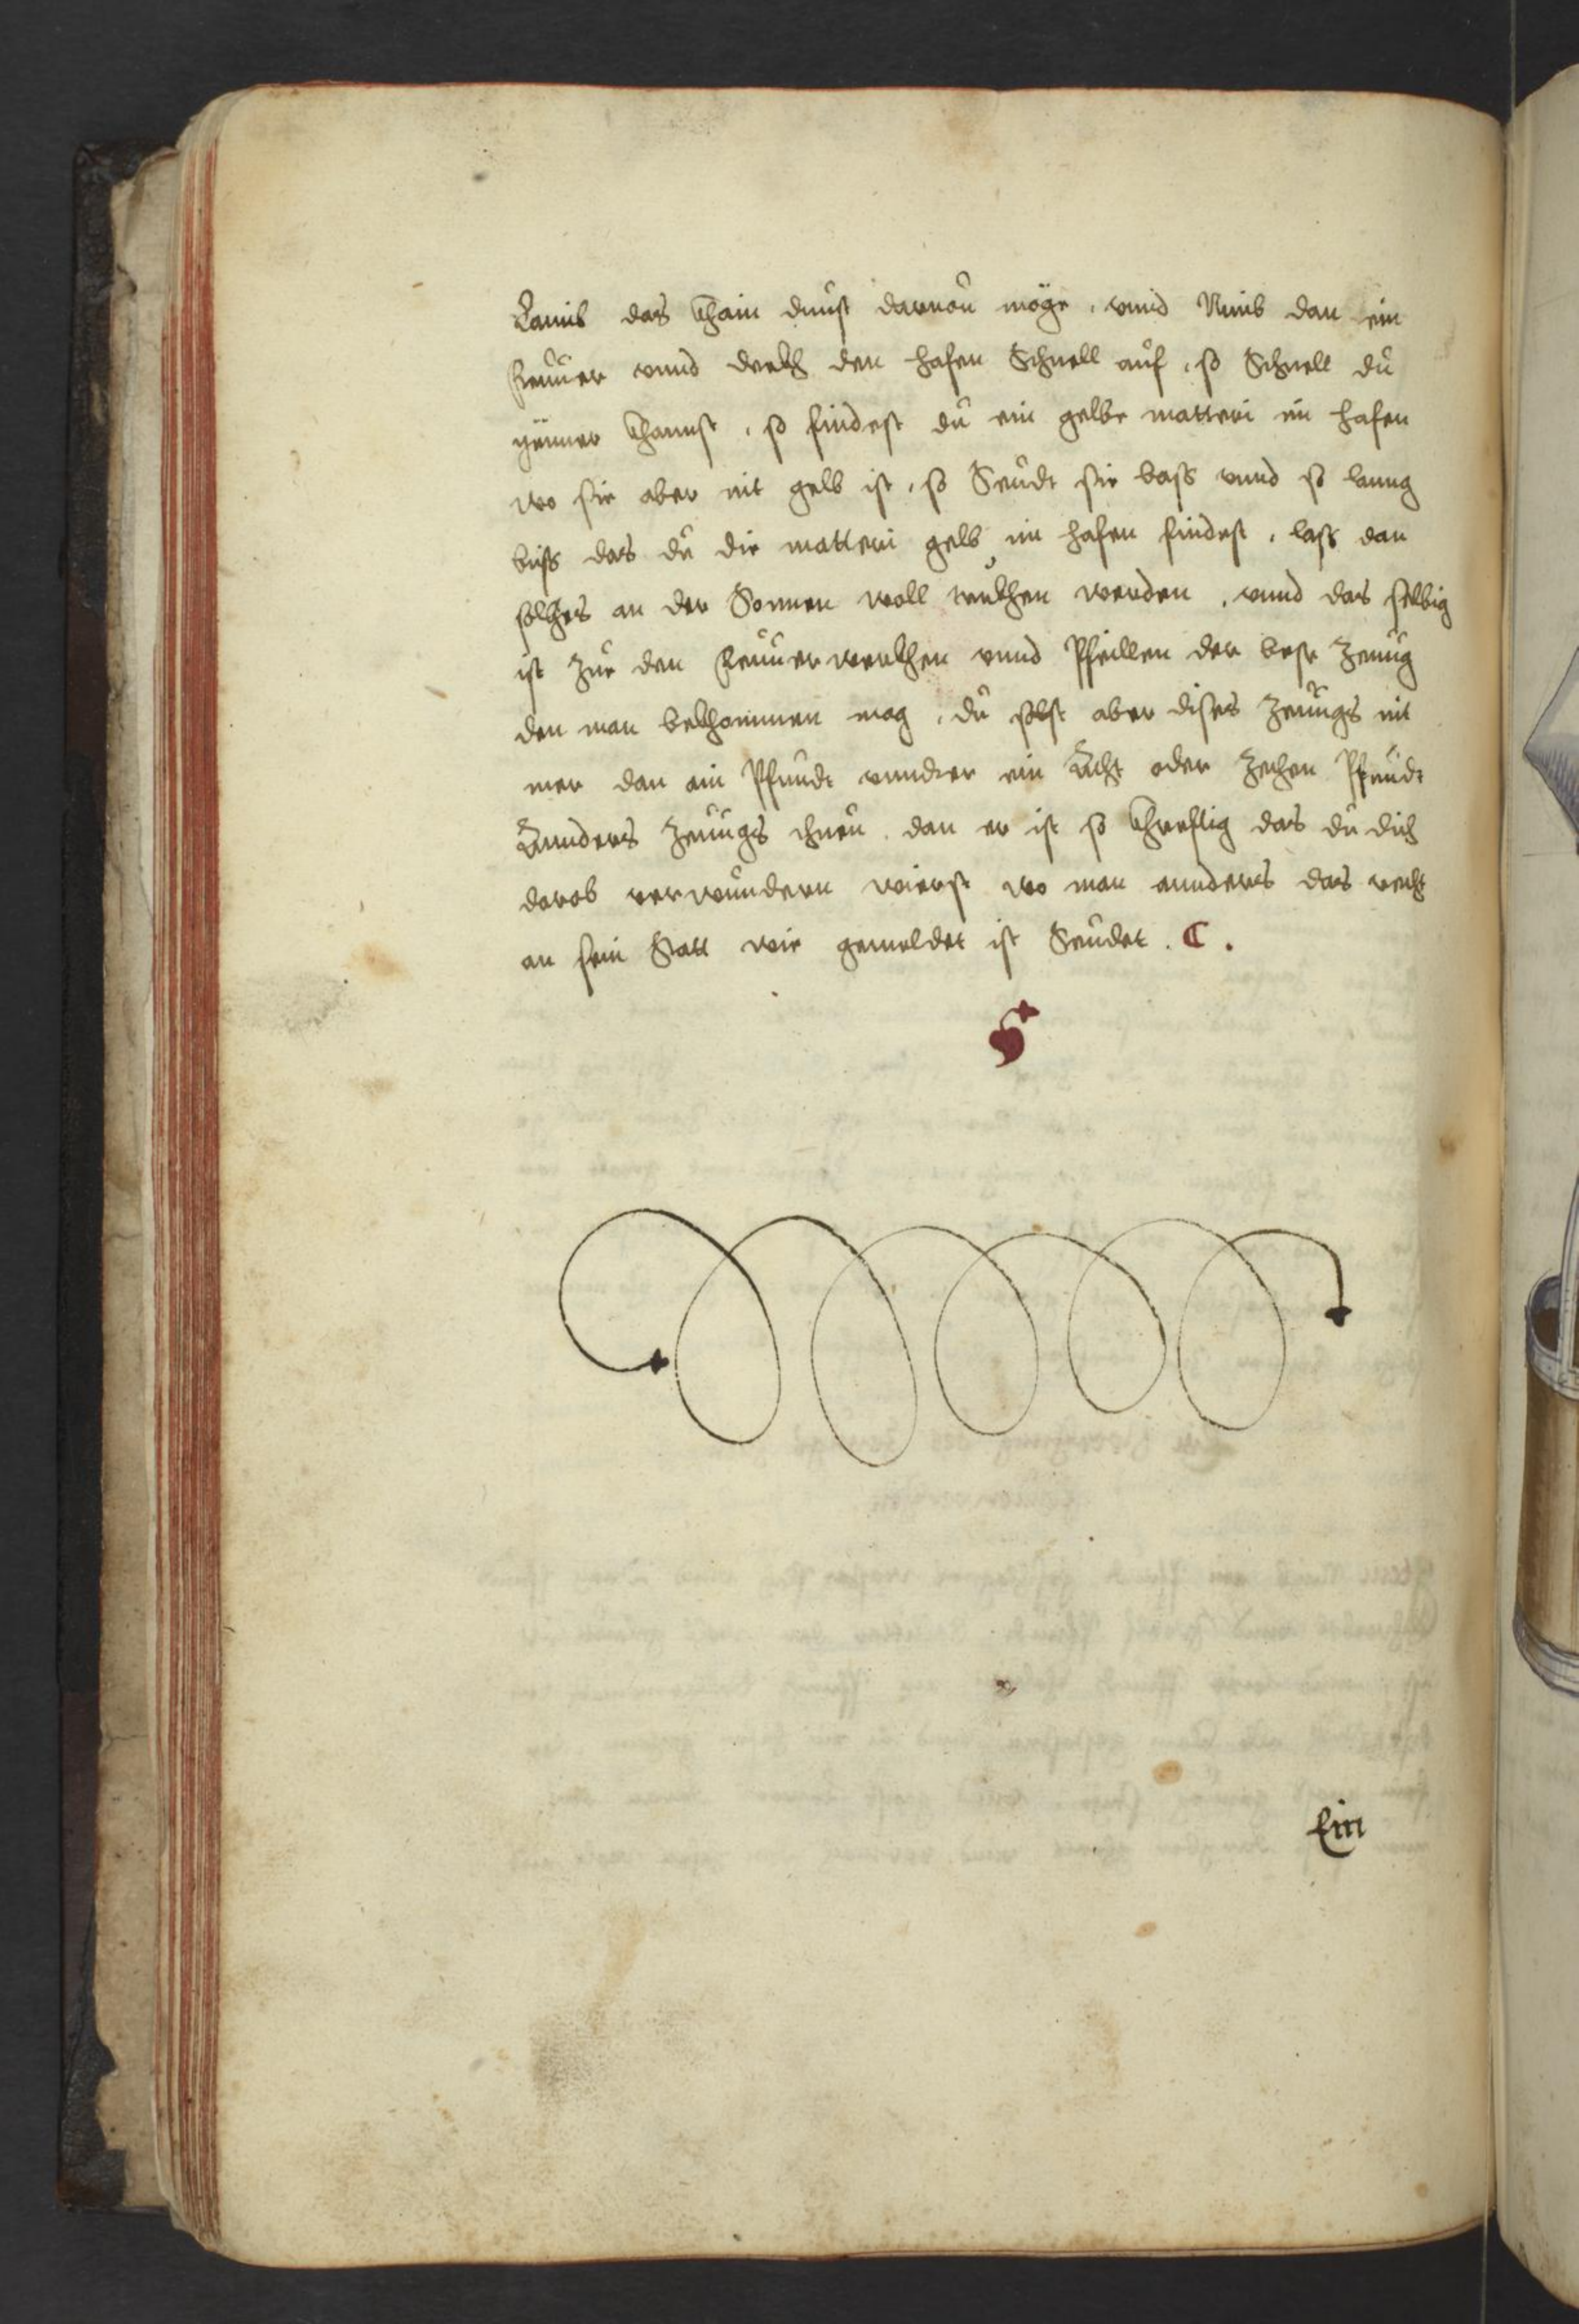 Laimb das khain dunst daruon möge, vnnd Nimb dan ein
Feuuer vnnd deckh den hafen Schnell auf, so Schnell du
ymmer khannst, so findest du ein gelbe matteri im hafen
wo sie aber nit gelb ist, so Seudt sie bass vnnd so lanng
biss das du die matteri gelb im hafen findest, lass dan
solches an der Sonnen woll truckhen werden, vnnd das selbig
ist zue den Feuuerwerckhen vnnd Pfeillen der beste Zeuug
den man bekhommen mag, du solst aber dises Zeuugs nit
mer dan ain Pfundt vnnder ein Acht oder Zechen Pfundt
Annders Zeuugs thuen, dan er ist so khrefftig das du dich
darob verwundern wierst wo man annders das recht
an sein Statt wie gemeldet ist Seudet. C.
Ein